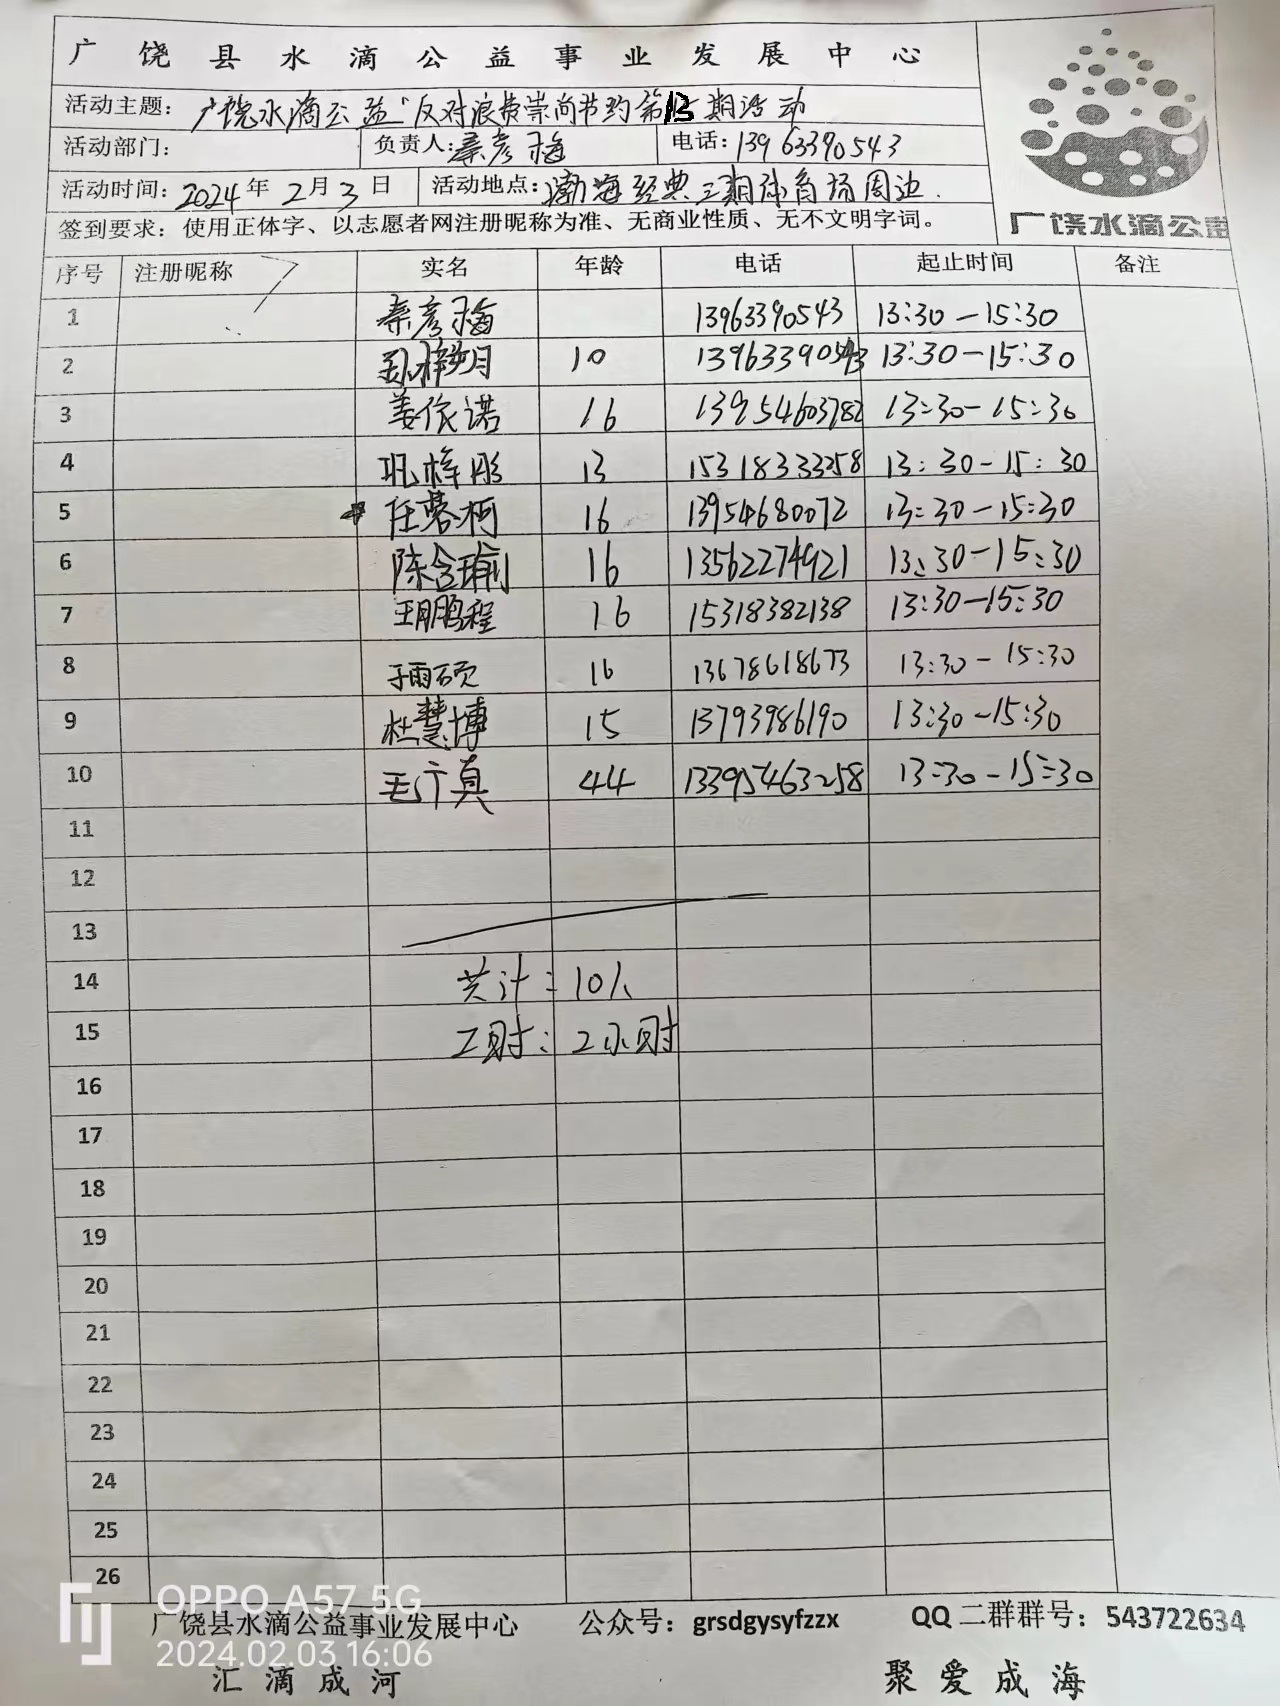 广饶县水滴公益事业发展中心
活动主题：广饶水滴公益"反对浪费崇尚节约第13期活动
活动部门： 负责人：秦彦梅 电话：13963390543
活动时间：2024年2月3日 活动地点：渤海经典三期体育场周边.
签到要求：使用正体字、以志愿者网注册昵称为准、无商业性质、无不文明字词。
广饶水滴公益
序号 注册昵称 实名 年龄 电话 起止时间 备注
1 秦彦梅 13963390543 13:30-15:30
2 月 10 13963390543 13:30-15:30
3 姜依诺 16 13954603782 13:30-15:30
4 巩梓彤 13 15318333258 13:30-15:30
5 任蓉柯 16 13954680072 13:30-15:30
6 陈含瑜 16 13562274921 13:30-15:30
7 王鹏程 16 15318382138 13:30-15:30
8 于雨硕 16 13678618673 13:30-15:30
9 杜慧博 15 13793986190 13:30-15:30
10 毛广真 44 13395463258 13:30-15:30
11
12
13
14 共计：10人
15 工时：2小时
16
17
18
19
20
21
22
23
24
25
26
OPPO A57 5G
广饶县水滴公益事业发展中心 公众号：grsdgysyfzzx QQ二群群号：543722634
2024.02.03 16:06
汇滴成河 聚爱成海